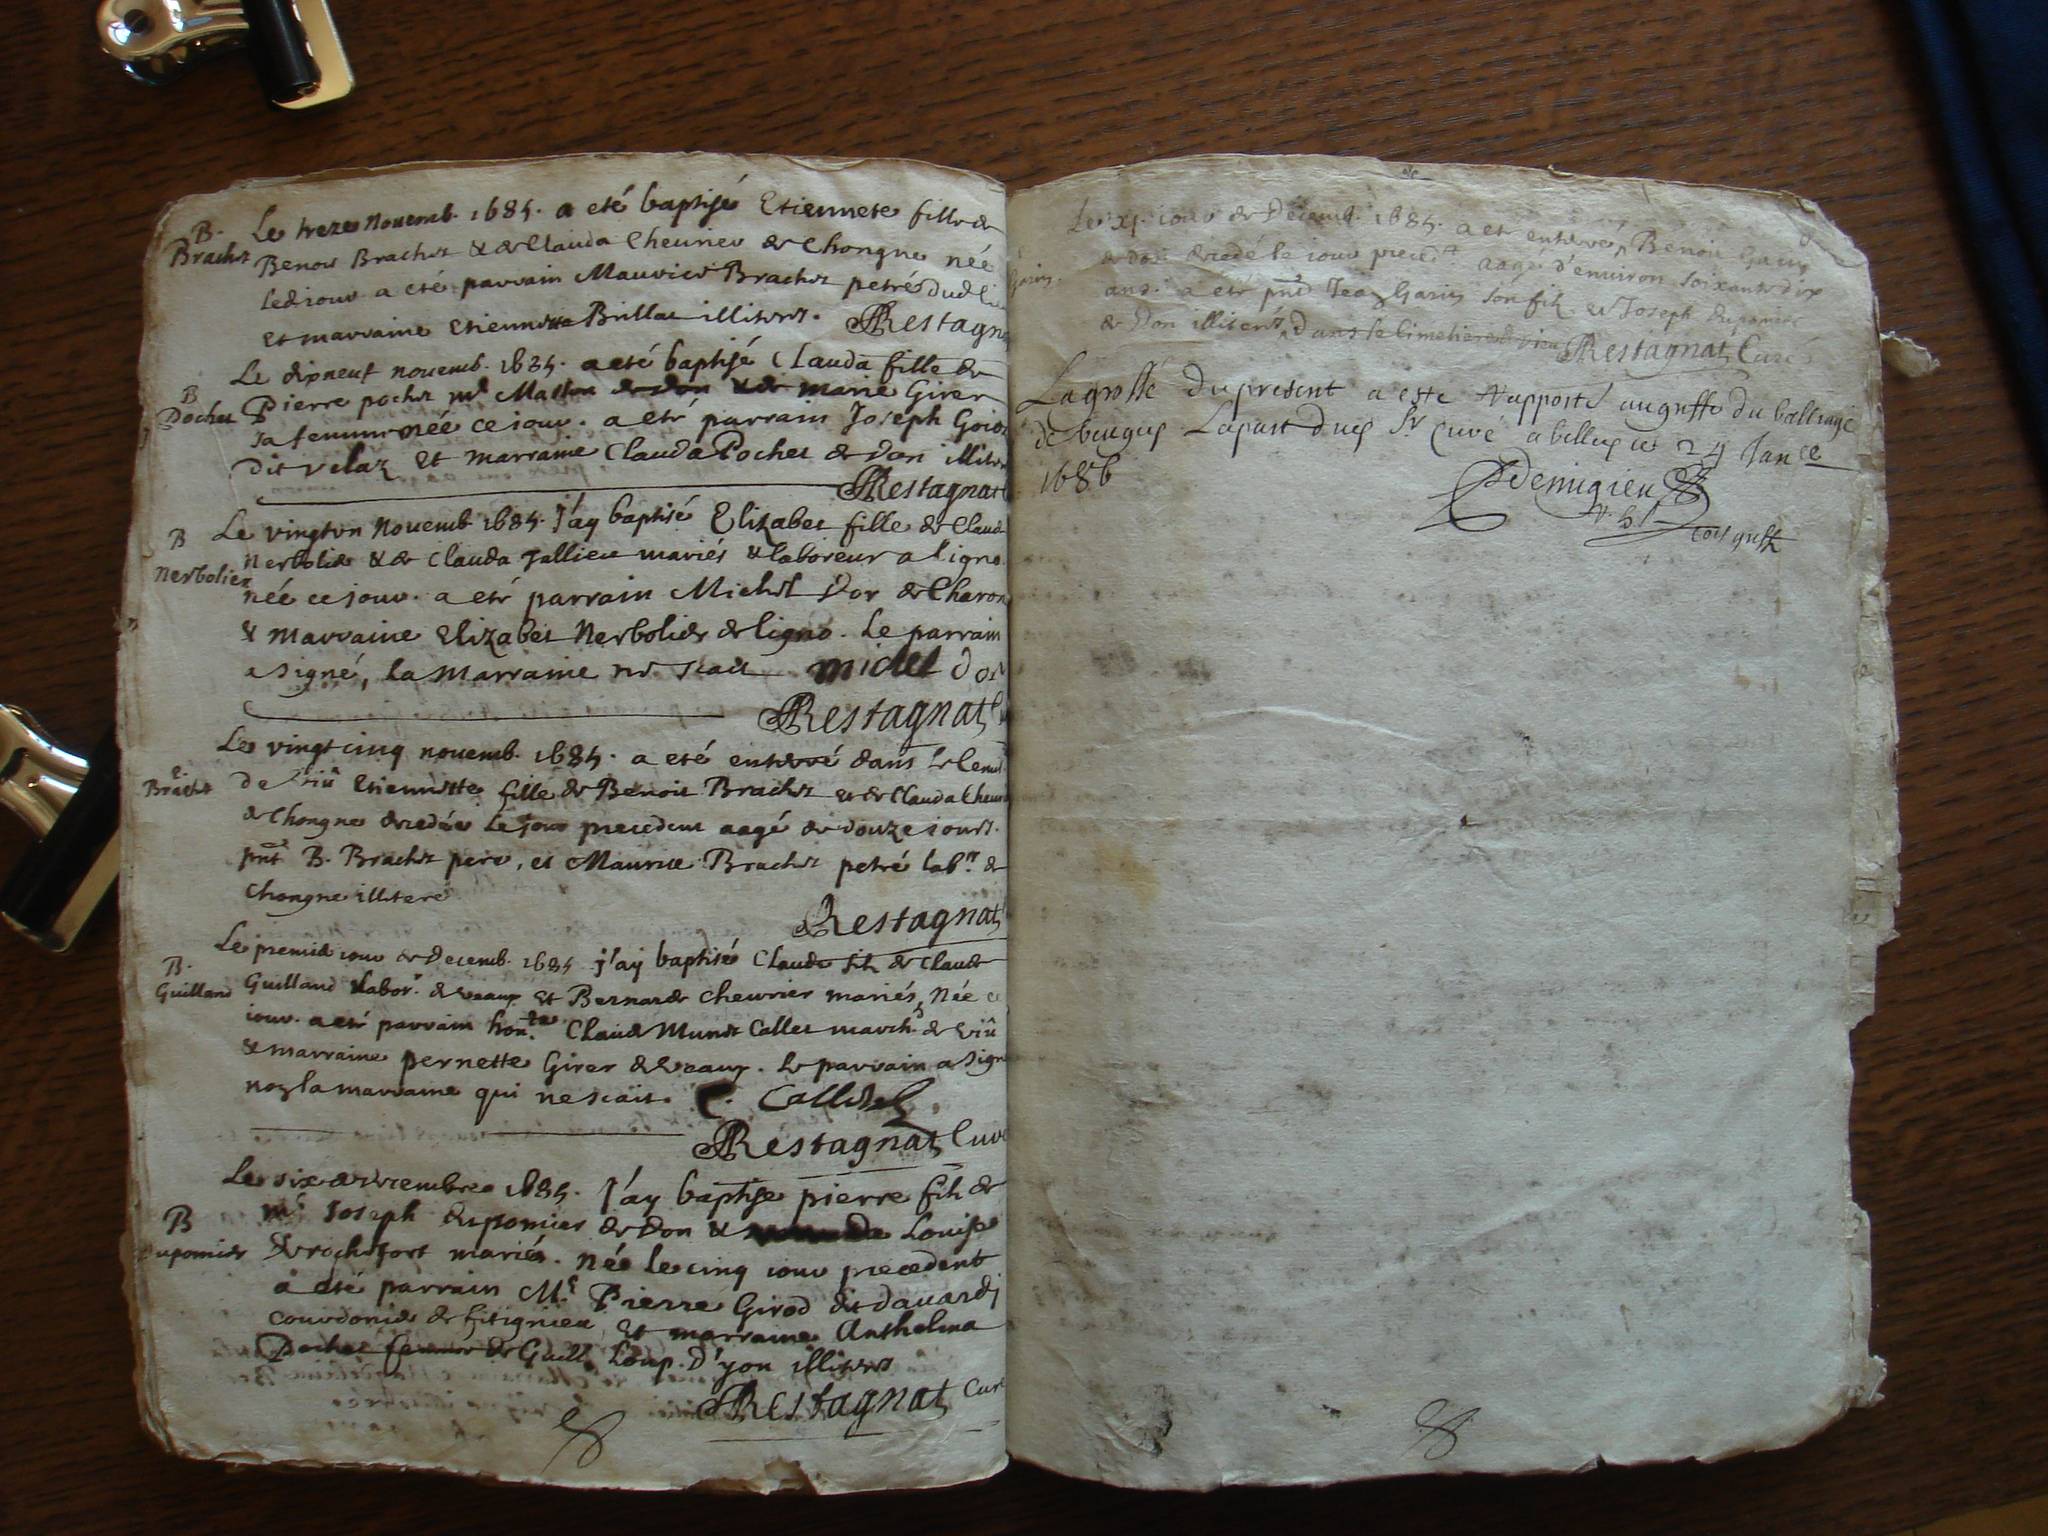 B.
Brachet
Le treze Nouemb. 1685. a eté baptisé Etiennete fille de
Benoit Brachet & de Clauda Cheurier de Chongne née
ledi iour a eté parrain Maurice Brachet petré dud
et marraine Etiennette Brillat illiteres. Restagna
B
Pochet
Le dixneuf nouemb. 1685. a eté baptisé Clauda fille de
Pierre pochet de don & de marie Girer
sa femme née ce iour. a eté parrain Joseph Goio
dit velaz et marraine Clauda Pochet de Don illiter
Restagnat
B
Nerbolier
Le vingtvn Nouemb. 1685. J'ay baptisé Elizabet fille de Claud
Nerbolier & de Clauda Jallieu mariés & laboreur a ligno
née ce iour. a eté parrain Michel Dor de Charon
& marraine Elizabet Nerbolier de ligno. Le parrain
a signé, la Marraine ne scait michel dor
Restagnat
Brachet
Le vingtcinq nouemb. 1685. a eté enterré dans le Cemet
de Viû Etiennette fille de Benoit Brachet et de Clauda Cheur
de Chongne decedée le iour precedent aagé de douze iours.
pnt B. Brachet pere, et Maurice Brachet petré labr. de
Chongne illiteré
Restagnat
B.
Guilland
Le premier iour de Decemb. 1685 j'ay baptisé Claude filz de Claude
Guilland labor. de veaux et Bernarde cheurier mariés, Née ce
iour. a eté parrain hon. Claude Munet Callet march. de viû
& marraine pernette Girer de veaux. le parrain a signé
non la marraine qui ne scait. C. Callet
Restagnat Curé
B
Dupomier
Le six decembre 1685. J'ay baptisé pierre filz de
me Joseph dupomier de Don & Louise
de rochefort mariés. Née le cinq iour precedent
a eté parrain Me Pierre Girod dit dauardj
courdonier de fitignieu et marraine Anthelma
Pochet de Guill. Loup. d'yon illiteres
Restagnat Curé
Garin.
Le xj. iour de Decemb. 1685. a eté enterré Benoit Garin
de don decedé le iour precedt aagé d'enuiron soixante dix
ans. a eté pnt Jean Garin son filz et Joseph dupomier
de Don illiteres, dans le Cimetiere de vieu Restagnat Curé
La grosse du present a esté rapporté au greffe du balliage
de beugey Lapart dud Sr curé a belley ce 24 Jance
1686
Demigieu